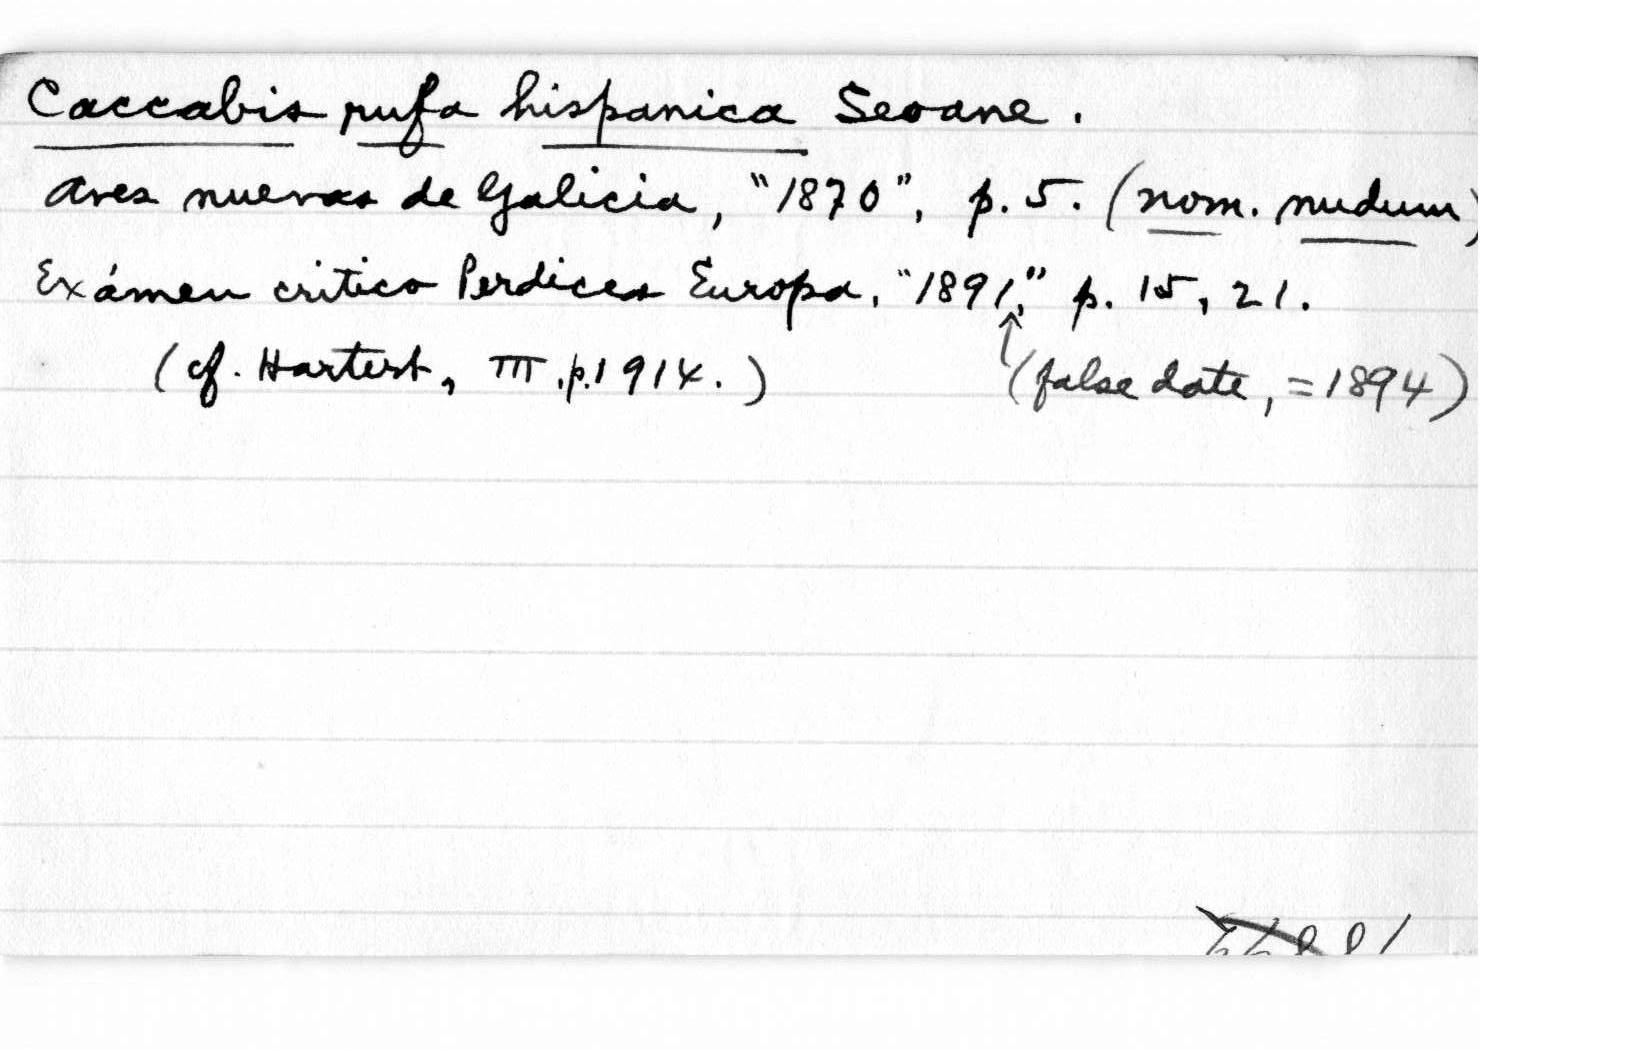 Caccabis rufa hispanica Seoane.
Aves nuevas de Galicia, "1870", p. 5. (nom. nudum)
Exámen critico Perdices Europa, "1891," p. 15, 21.
(cf. Hartert, III, p. 1914.) (false date, = 1894)